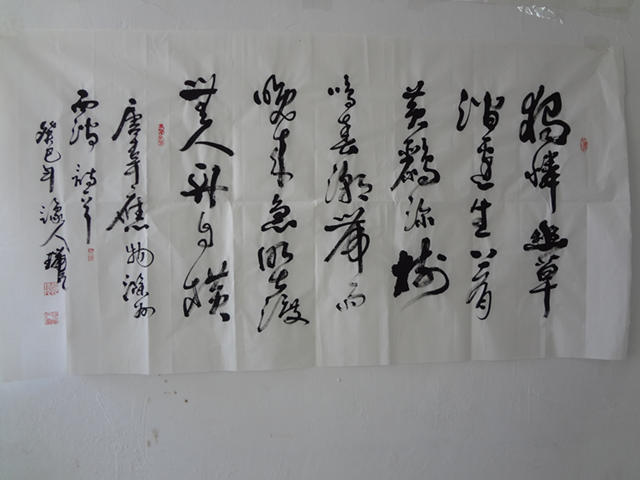 獨憐幽草
澗邊生上有
黃鸝深樹
鳴春潮帶雨
晚來急野渡
無人舟自橫
唐韋應物滁州
西澗詩
癸巳年豫人